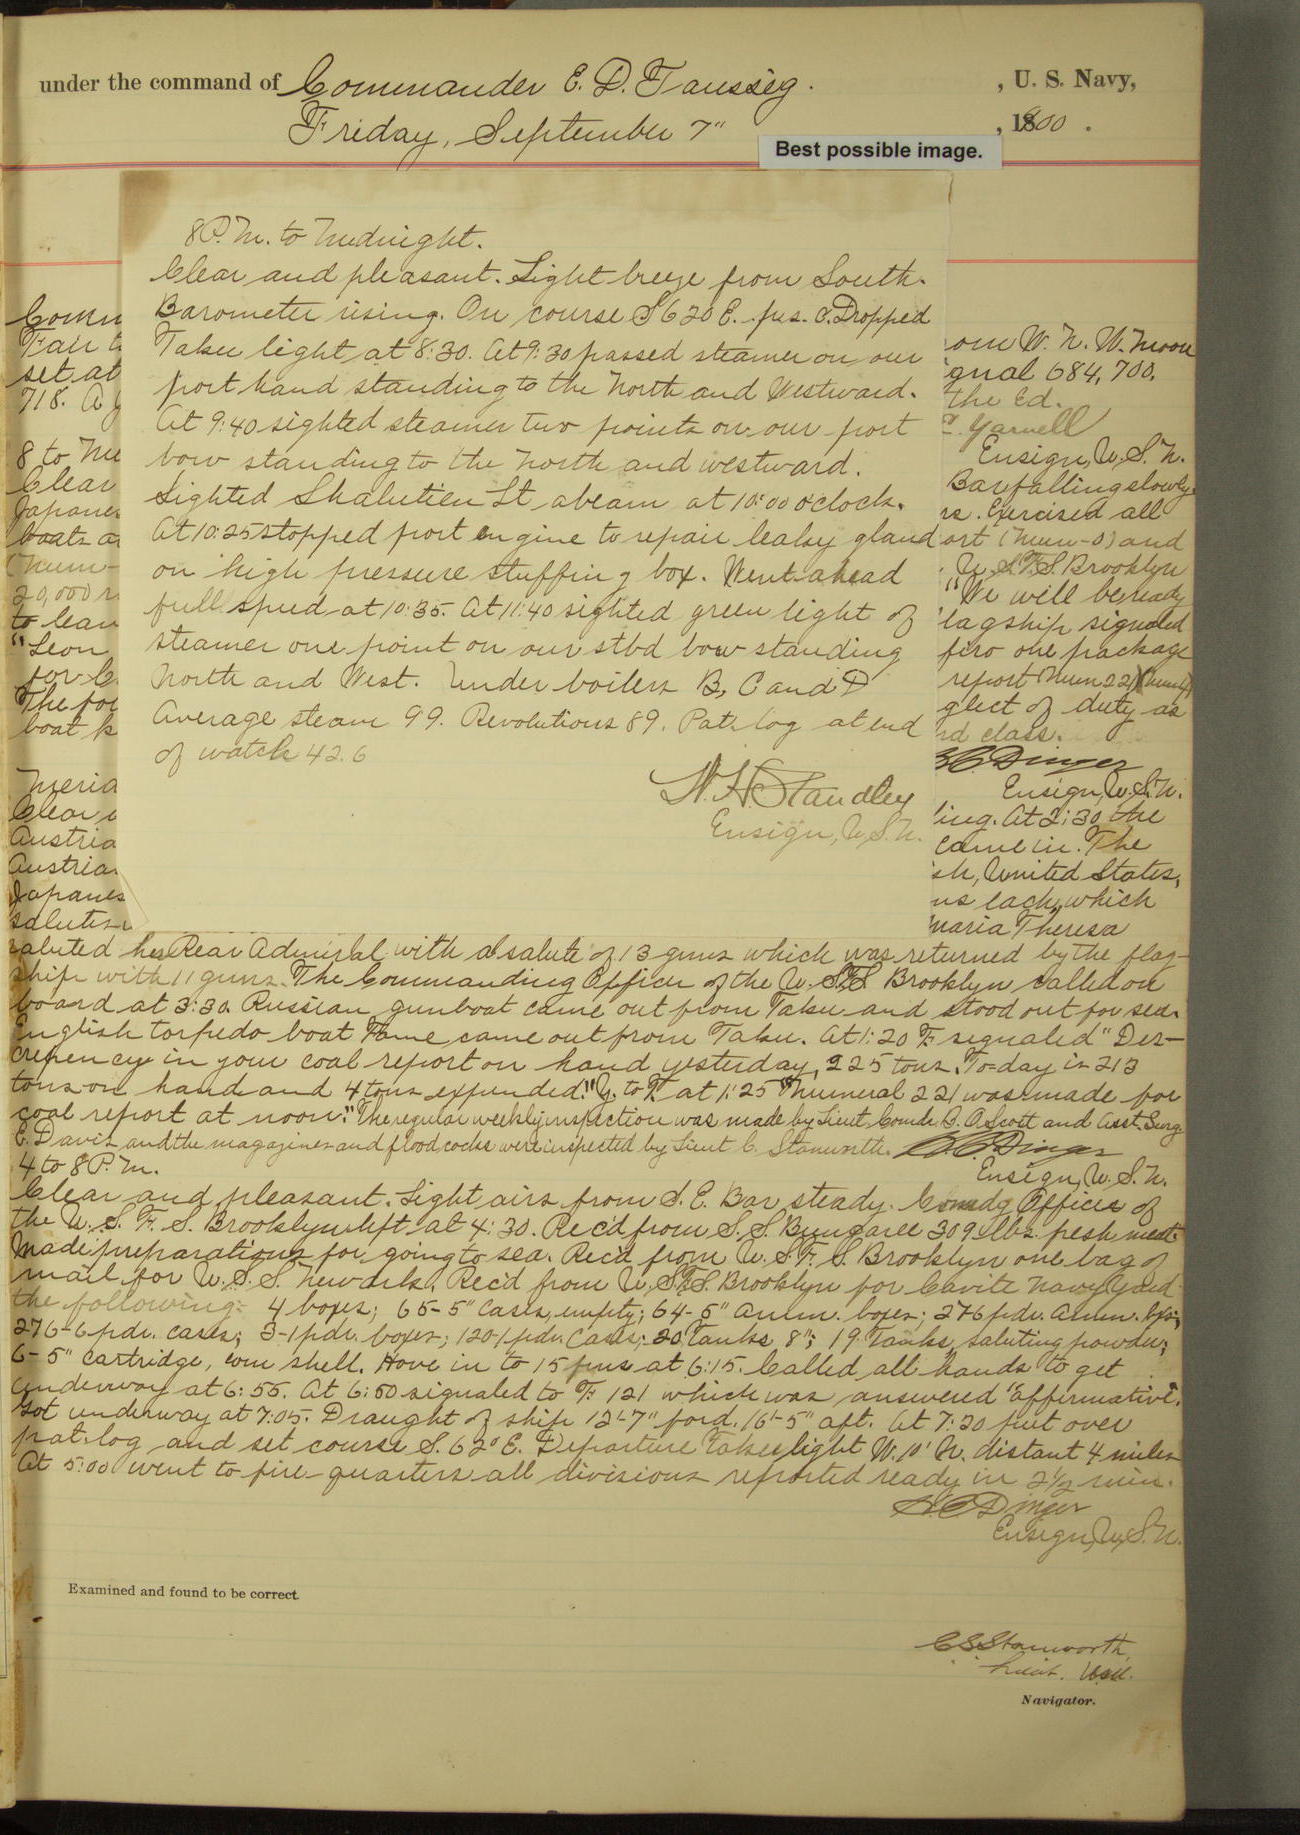 under the command of Commander E. D. Taussig. , U. S. Navy,
Friday, September 7" , 1900 .
Best possible image.
8 P.M. to Midnight.
Clear and pleasant. Light breeze from South.
Barometer rising. On course S 62° E. p.s.c. Dropped
Taku light at 8:30. At 9:30 passed steamer on our
port hand standing to the North and Westward.
At 9:40 sighted steamer two points on our port
bow standing to the North and westward.
Sighted Shalutien Lt abeam at 10:00 o'clock.
At 10:25 stopped port engine to repair leaky gland
on high pressure stuffing box. Went ahead
full speed at 10:35. At 11:40 sighted green light of
steamer one point on our stbd bow standing
North and West. Under boilers B, C and D
Average steam 99. Revolutions 89. Pat. log at end
of watch 42.6
W. H. Standley
Ensign, U.S.N.
Fair
set at
718. A
8 to Me
Clear
Japanes
boats a
(Num-
20,000
to lean
"Leon
for C
The for
boat k
Meria
Clear
Austria
Austria
Japanes
salutes
om W. N. W. Moon
gnal 684, 700,
the Ed.
Yarnell
Ensign, U.S.N.
Bar falling slowly.
rs. Exercised all
ort (Num-0) and
U.S.F.S. Brooklyn
"We will be ready
lagship signaled
one package
report Num 221
glect of duty as
rd class.
H C Dinger
Ensign, U.S.N.
ling. At 2:30 the
came in. The
sh, United States,
ns each, which
Maria Theresa
saluted her Rear Admiral with a salute of 13 guns which was returned by the flag-
ship with 11 guns. The Commanding Officer of the U.S.F.S. Brooklyn called on
board at 3:30. Russian gunboat came out from Taku and stood out for sea.
English torpedo boat Fame came out from Taku. At 1:20 F. signaled "Des-
crepency in your coal report on hand yesterday, 225 tons. To-day is 213
tons on hand and 4 tons expended." Y. to F. at 1:25 "Numeral 221 was made for
coal report at noon." The regular weekly inspection was made by Lieut. Comdr. C. O. Scott and Asst. Surg.
E. Davis and the magazines and flood cocks were inspected by Lieut C. Stanworth. H C Dinger
4 to 8 P.M. Ensign, U.S.N.
Clear and pleasant. Light airs from S. E. Bar steady. Comdg Officer of
the U. S. F. S. Brooklyn left at 4:30. Rec'd from S. S. Bungaree 309 lbs. fresh meat.
Made preparations for going to sea. Rec'd from U. S. F. S. Brooklyn one bag of
mail for U.S.S. Newark. Rec'd from U.S.F.S. Brooklyn for Cavite Navy Yard
the following: 4 boxes; 65-5" cases, empty; 64-5" amm. boxes; 27-6 pdr. amm. bxs;
276-6 pdr. cases; 3-1 pdr. boxes; 120-1 pdr. cases; 20 Tanks 8"; 19 Tanks, saluting powder;
6-5" cartridge, com shell. Hove in to 15 fms at 6:15. Called all hands to get
underway at 6:55. At 6:50 signaled to F. 121 which was answered "affirmative".
Got underway at 7:05. Draught of ship 12'-7" ford. 16'-5" aft. At 7:20 put over
pat. log and set course S. 62° E. Departure Taku light W. 10' N. distant 4 miles
At 5:00 went to fire-quarters all divisions reported ready in 2 1/2 min.
H C Dinger
Ensign, U.S.N.
Examined and found to be correct.
C S Stanworth,
Lieut. USN.
Navigator.